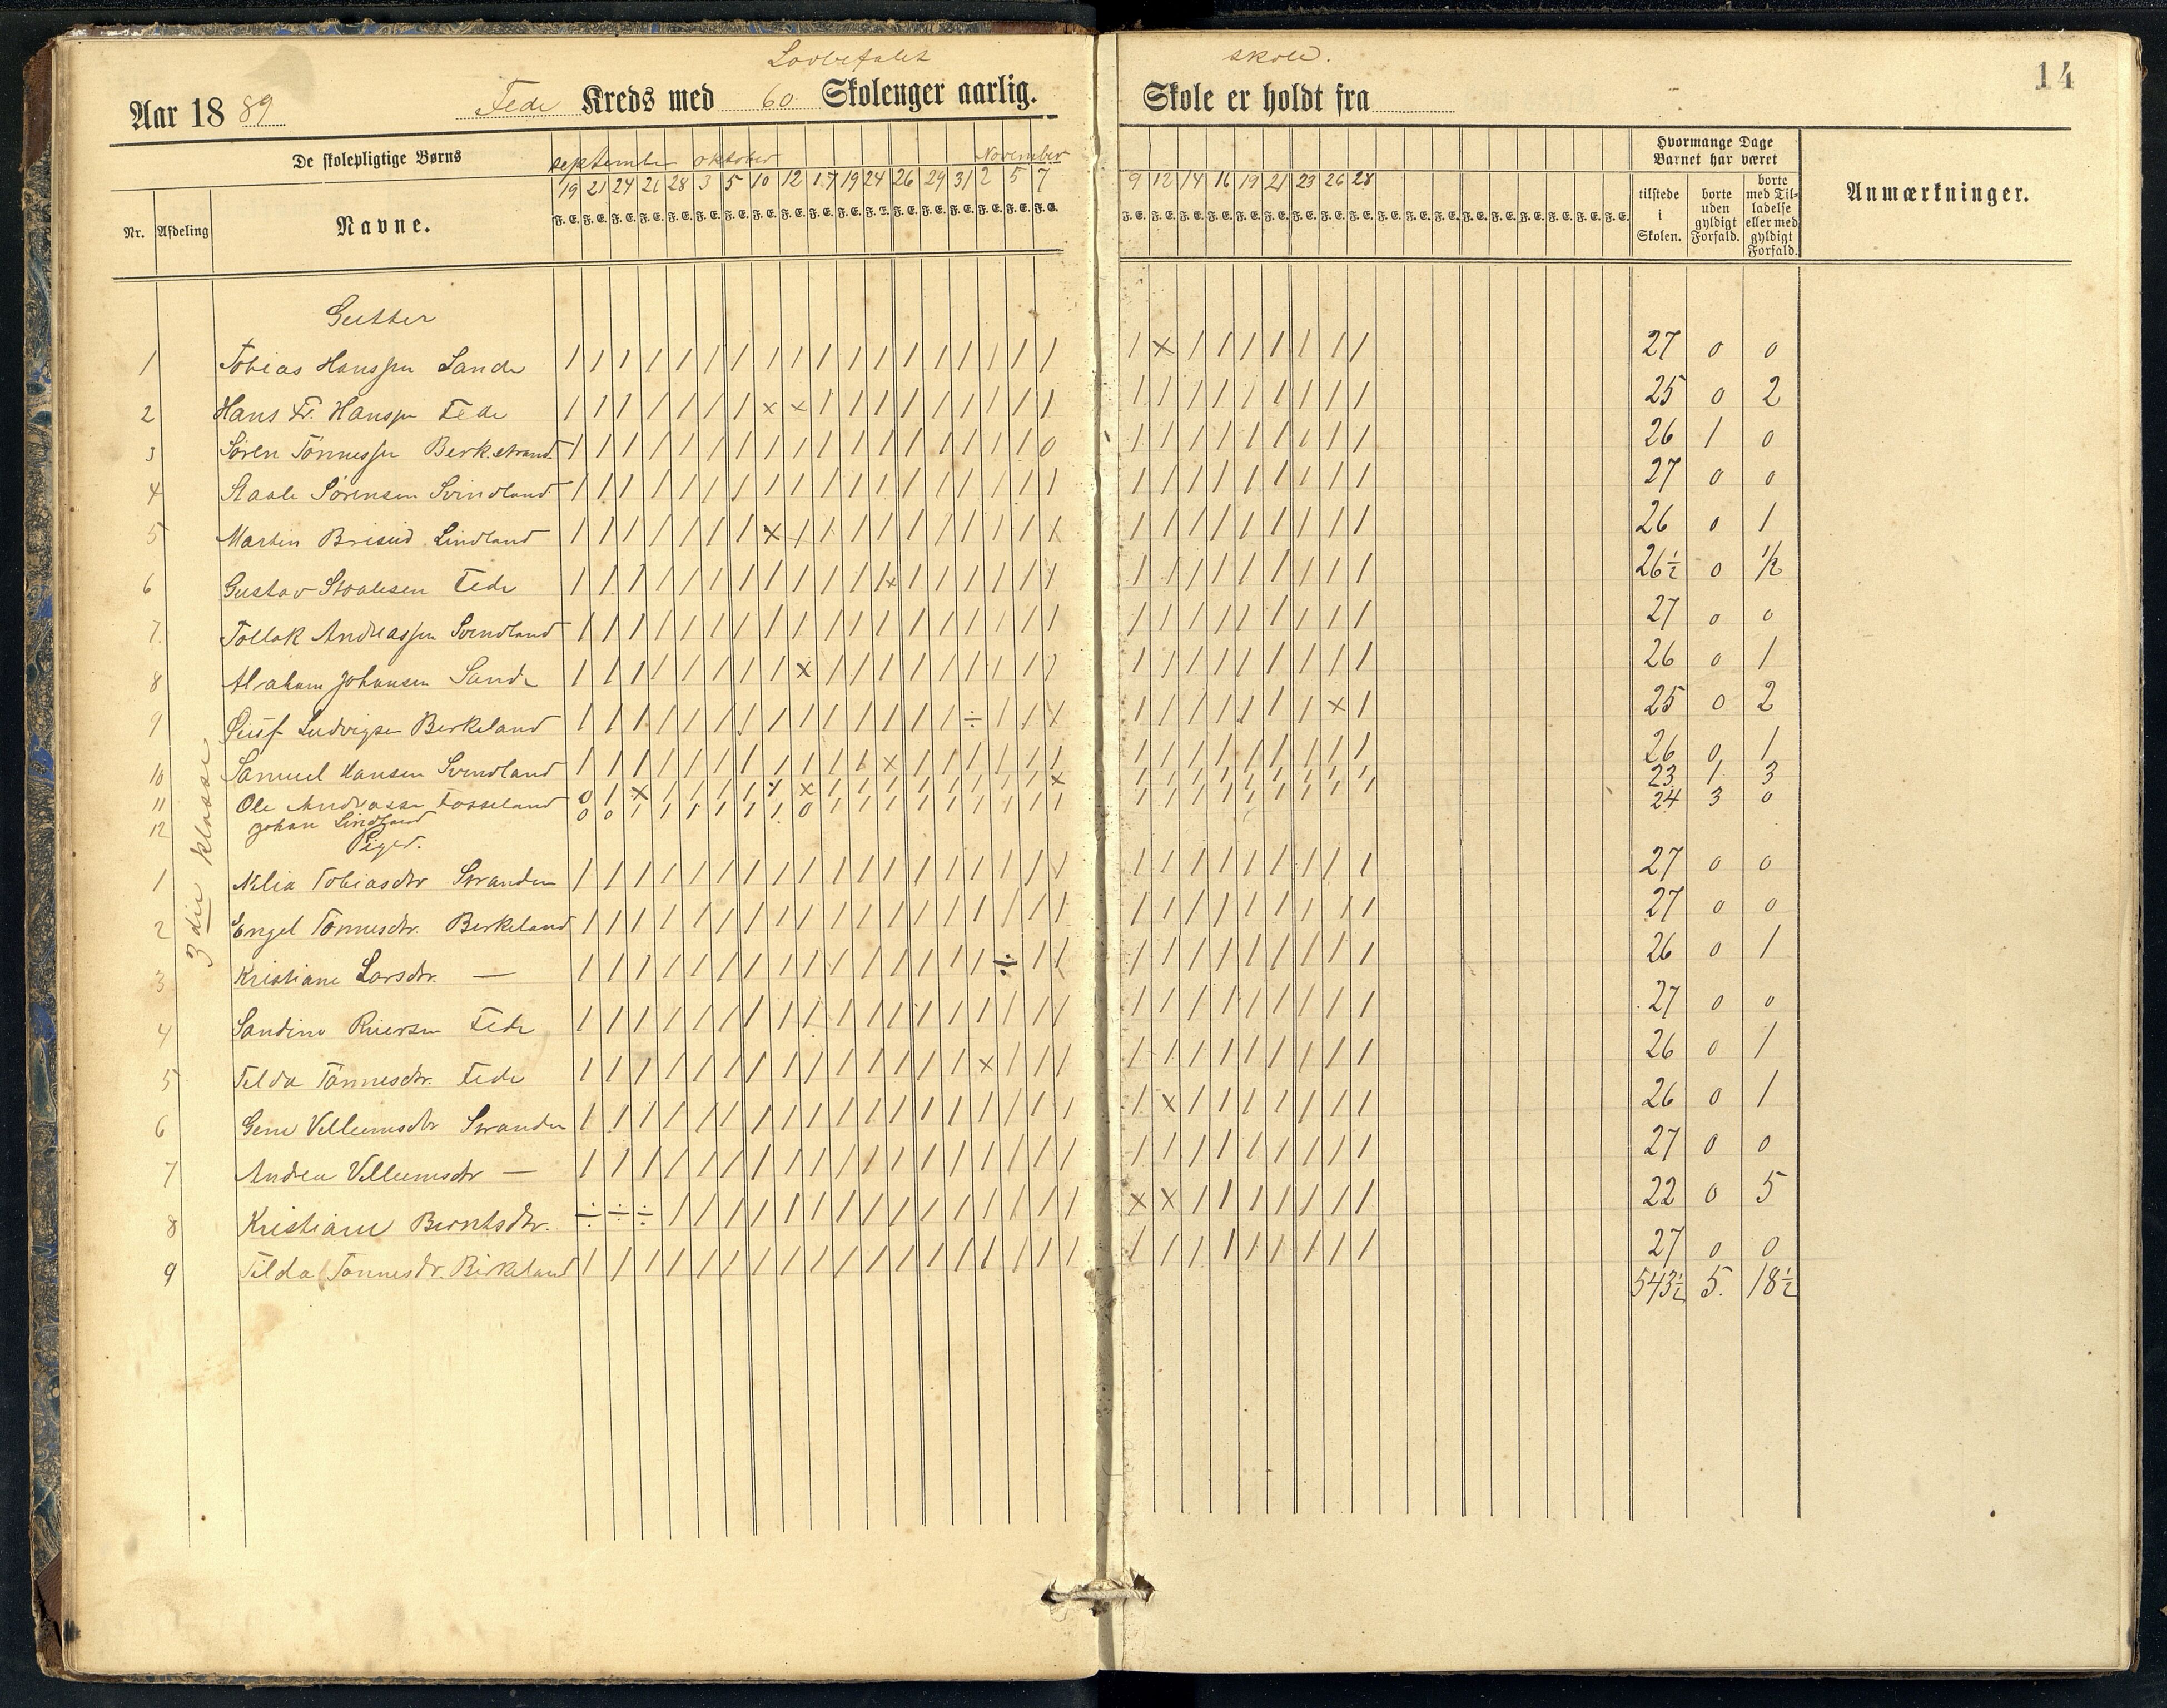 Lovbefalet skole.
14
Aar 1889 Fede Kreds med 60 Skoleuger aarlig. Skole er holdt fra
De skolepligtige Børns
september oktober November
Hvormange Dage Barnet har været
Nr. Afdeling Navne.
19 21 24 26 28 3 5 10 12 17 19 24 26 29 31 2 5 7 9 12 14 16 19 21 23 26 28
F. E. F. E. F. E. F. E. F. E. F. E. F. E. F. E. F. E. F. E. F. E. F. E. F. E. F. E. F. E. F. E. F. E. F. E.
tilstede i Skolen.
borte uden gyldigt Forfald.
borte med Tilladelse eller med gyldigt Forfald.
Anmærkninger.
3die klasse
Gutter
1 Tobias Hanssen Sande / / / / / / / / / / / / / / / / / / / x / / / / / / / 27 0 0
2 Hans Fr. Hanssen Fede / / / / / / / x x / / / / / / / / / / / / / / / / / / 25 0 2
3 Sören Tönnessen Berk.strand / / / / / / / / / / / / / / / / / 0 / / / / / / / / / 26 1 0
4 Staale Sörensen Svindland / / / / / / / / / / / / / / / / / / / / / / / / / / / 27 0 0
5 Martin Lindland 26 0 1
6 Gustav Staalesen Fede 26½ 0 ½
7. Tollak Andreassen Svindland / / / / / / / / / / / / / / / / / / / / / / / / / / / 27 0 0
8 Abraham Johansen Sande / / / / / / / / x / / / / / / / / / / / / / / / / / / 26 0 1
9 Ludvigsen Berkeland 25 0 2
10 Samuel Hansen Svindland / / / / / / / / / / / x / / / / / / / / / / / / / / / 26 0 1
11 Ole Andreasse Fosseland 23 1 3
12 Johan Lindland 24 3 0
Piger.
1 Nilia Tobiasdtr Stranden / / / / / / / / / / / / / / / / / / / / / / / / / / / 27 0 0
2 Engel Tönnesdtr. Berkeland / / / / / / / / / / / / / / / / / / / / / / / / / / / 27 0 0
3 Kristiane Larsdtr. — / / / / / / / / / / / / / / / ÷ / / / / / / / / / / / 26 0 1
4 Sandine Fede / / / / / / / / / / / / / / / / / / / / / / / / / / / 27 0 0
5 Tilda Tönnesdtr. Fede / / / / / / / / / / / / / / x / / / / / / / / / / / / 26 0 1
6 Gene Villumsdtr Stranden / / / / / / / / / / / / / / / / / / / x / / / / / / / 26 0 1
7 Andrea Villumsdtr — / / / / / / / / / / / / / / / / / / / / / / / / / / / 27 0 0
8 Kristiane Berntsdtr. ÷ ÷ ÷ / / / / / / / / / / / / / / / x x / / / / / / / 22 0 5
9 Tilda Tönnesdtr. Birkeland / / / / / / / / / / / / / / / / / / / / / / / / / / / 27 0 0
543½ 5. 18½